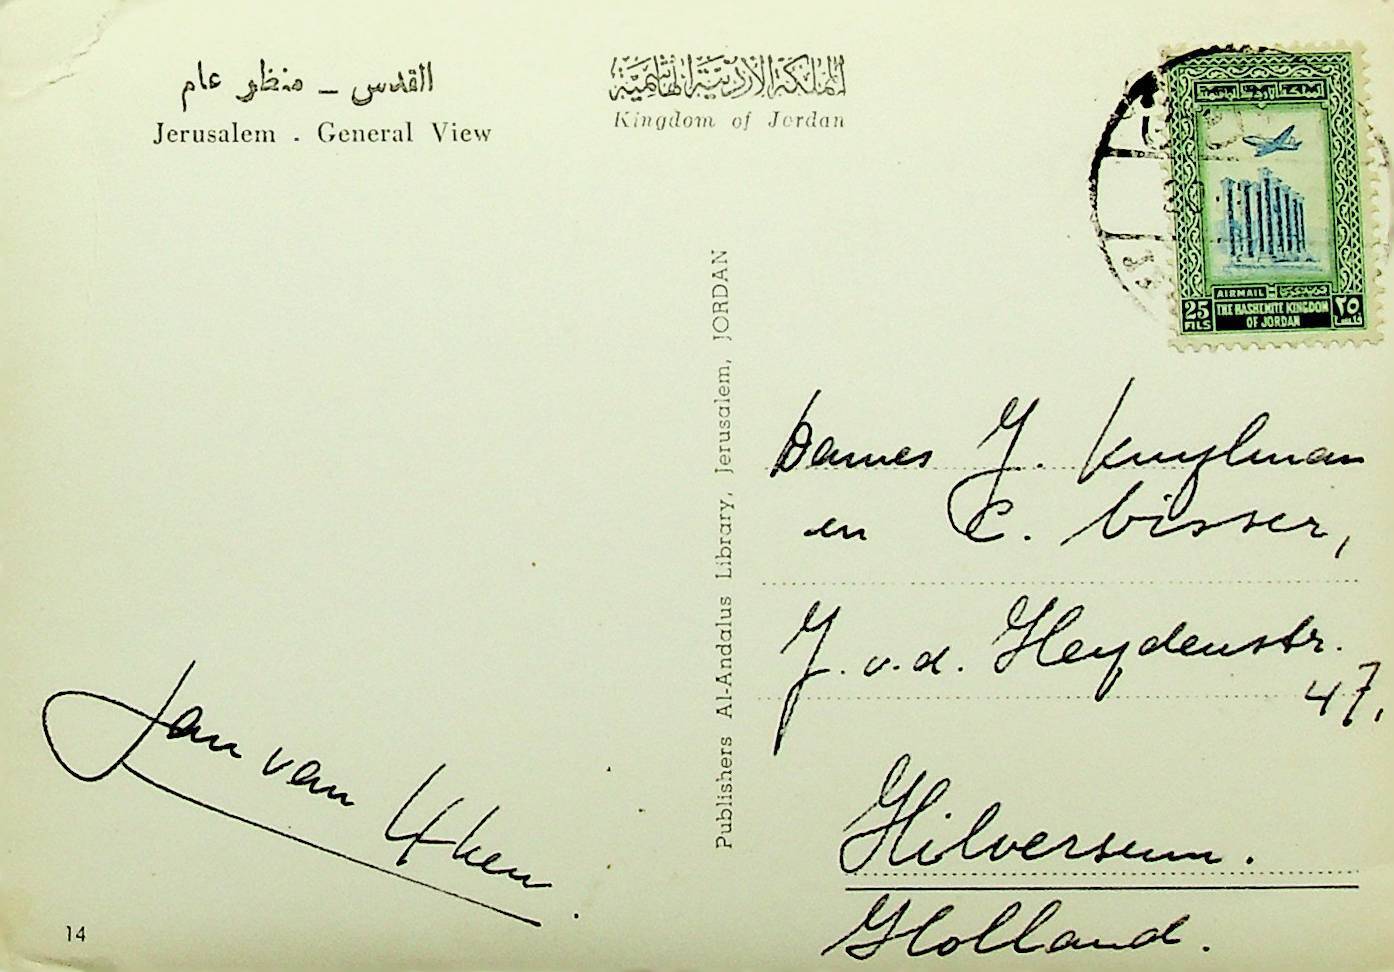 القدس - منظر عام
Jerusalem . General View
المملكة الاردنية الهاشمية
Kingdom of Jordan
AIRMAIL
25
FILS
THE HASHEMITE KINGDOM
OF JORDAN
٢٥
فلس
Publishers Al-Andalus Library, Jerusalem, JORDAN
Dames J. Kuylman
en C. Visser,
J. v. d. Heydenstr.
47.
Hilversum.
Holland.
Jan van
14